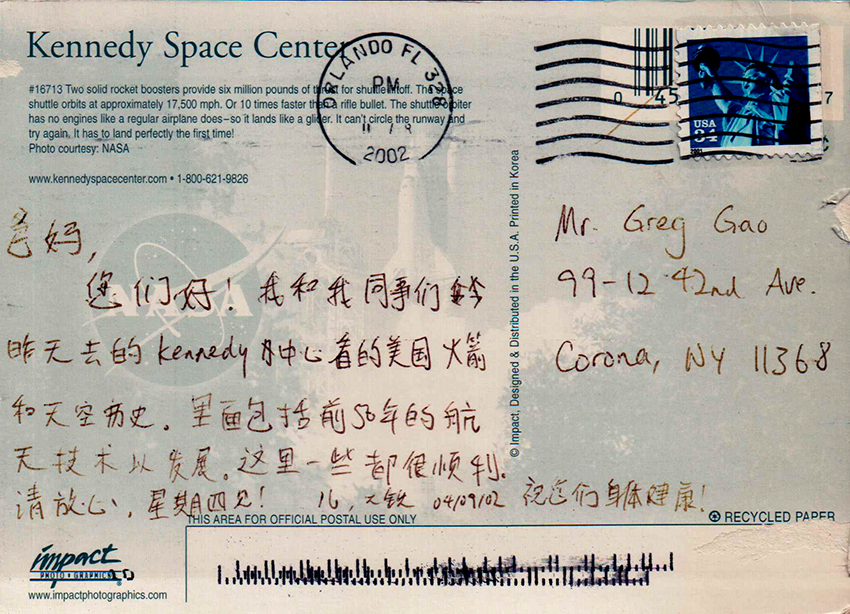 Kennedy Space Center
#16713 Two solid rocket boosters provide six million pounds of thrust for shuttle liftoff. The space
shuttle orbits at approximately 17,500 mph. Or 10 times faster than a rifle bullet. The shuttle orbiter
has no engines like a regular airplane does–so it lands like a glider. It can't circle the runway and
try again. It has to land perfectly the first time!
Photo courtesy: NASA
www.kennedyspacecenter.com • 1-800-621-9826
ORLANDO FL 328
PM
2002
0 45
7
USA
34
2001
NASA
爸妈,
您们好! 我和我同事们
昨天去的 Kennedy 中心看的美国火箭
和天空历史。里面包括前50年的航
天技术以发展。这里一些都很顺利。
请放心, 星期四见! 儿, 大 04/09/02 祝您们身体健康!
© Impact, Designed & Distributed in the U.S.A. Printed in Korea
Mr. Greg Gao
99-12 42nd Ave.
Corona, NY 11368
THIS AREA FOR OFFICIAL POSTAL USE ONLY
RECYCLED PAPER
impact
PHOTO • GRAPHICS
www.impactphotographics.com